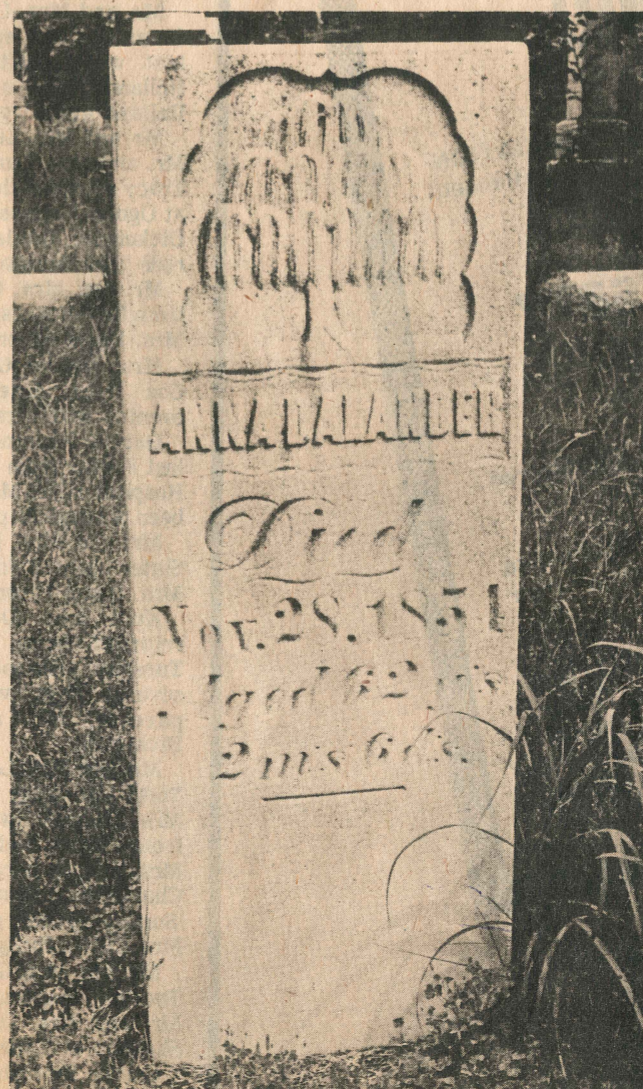 ANNA DALANDER
Died
Nov. 28. 1854
Aged 62 y's
2 m's 6 d's.